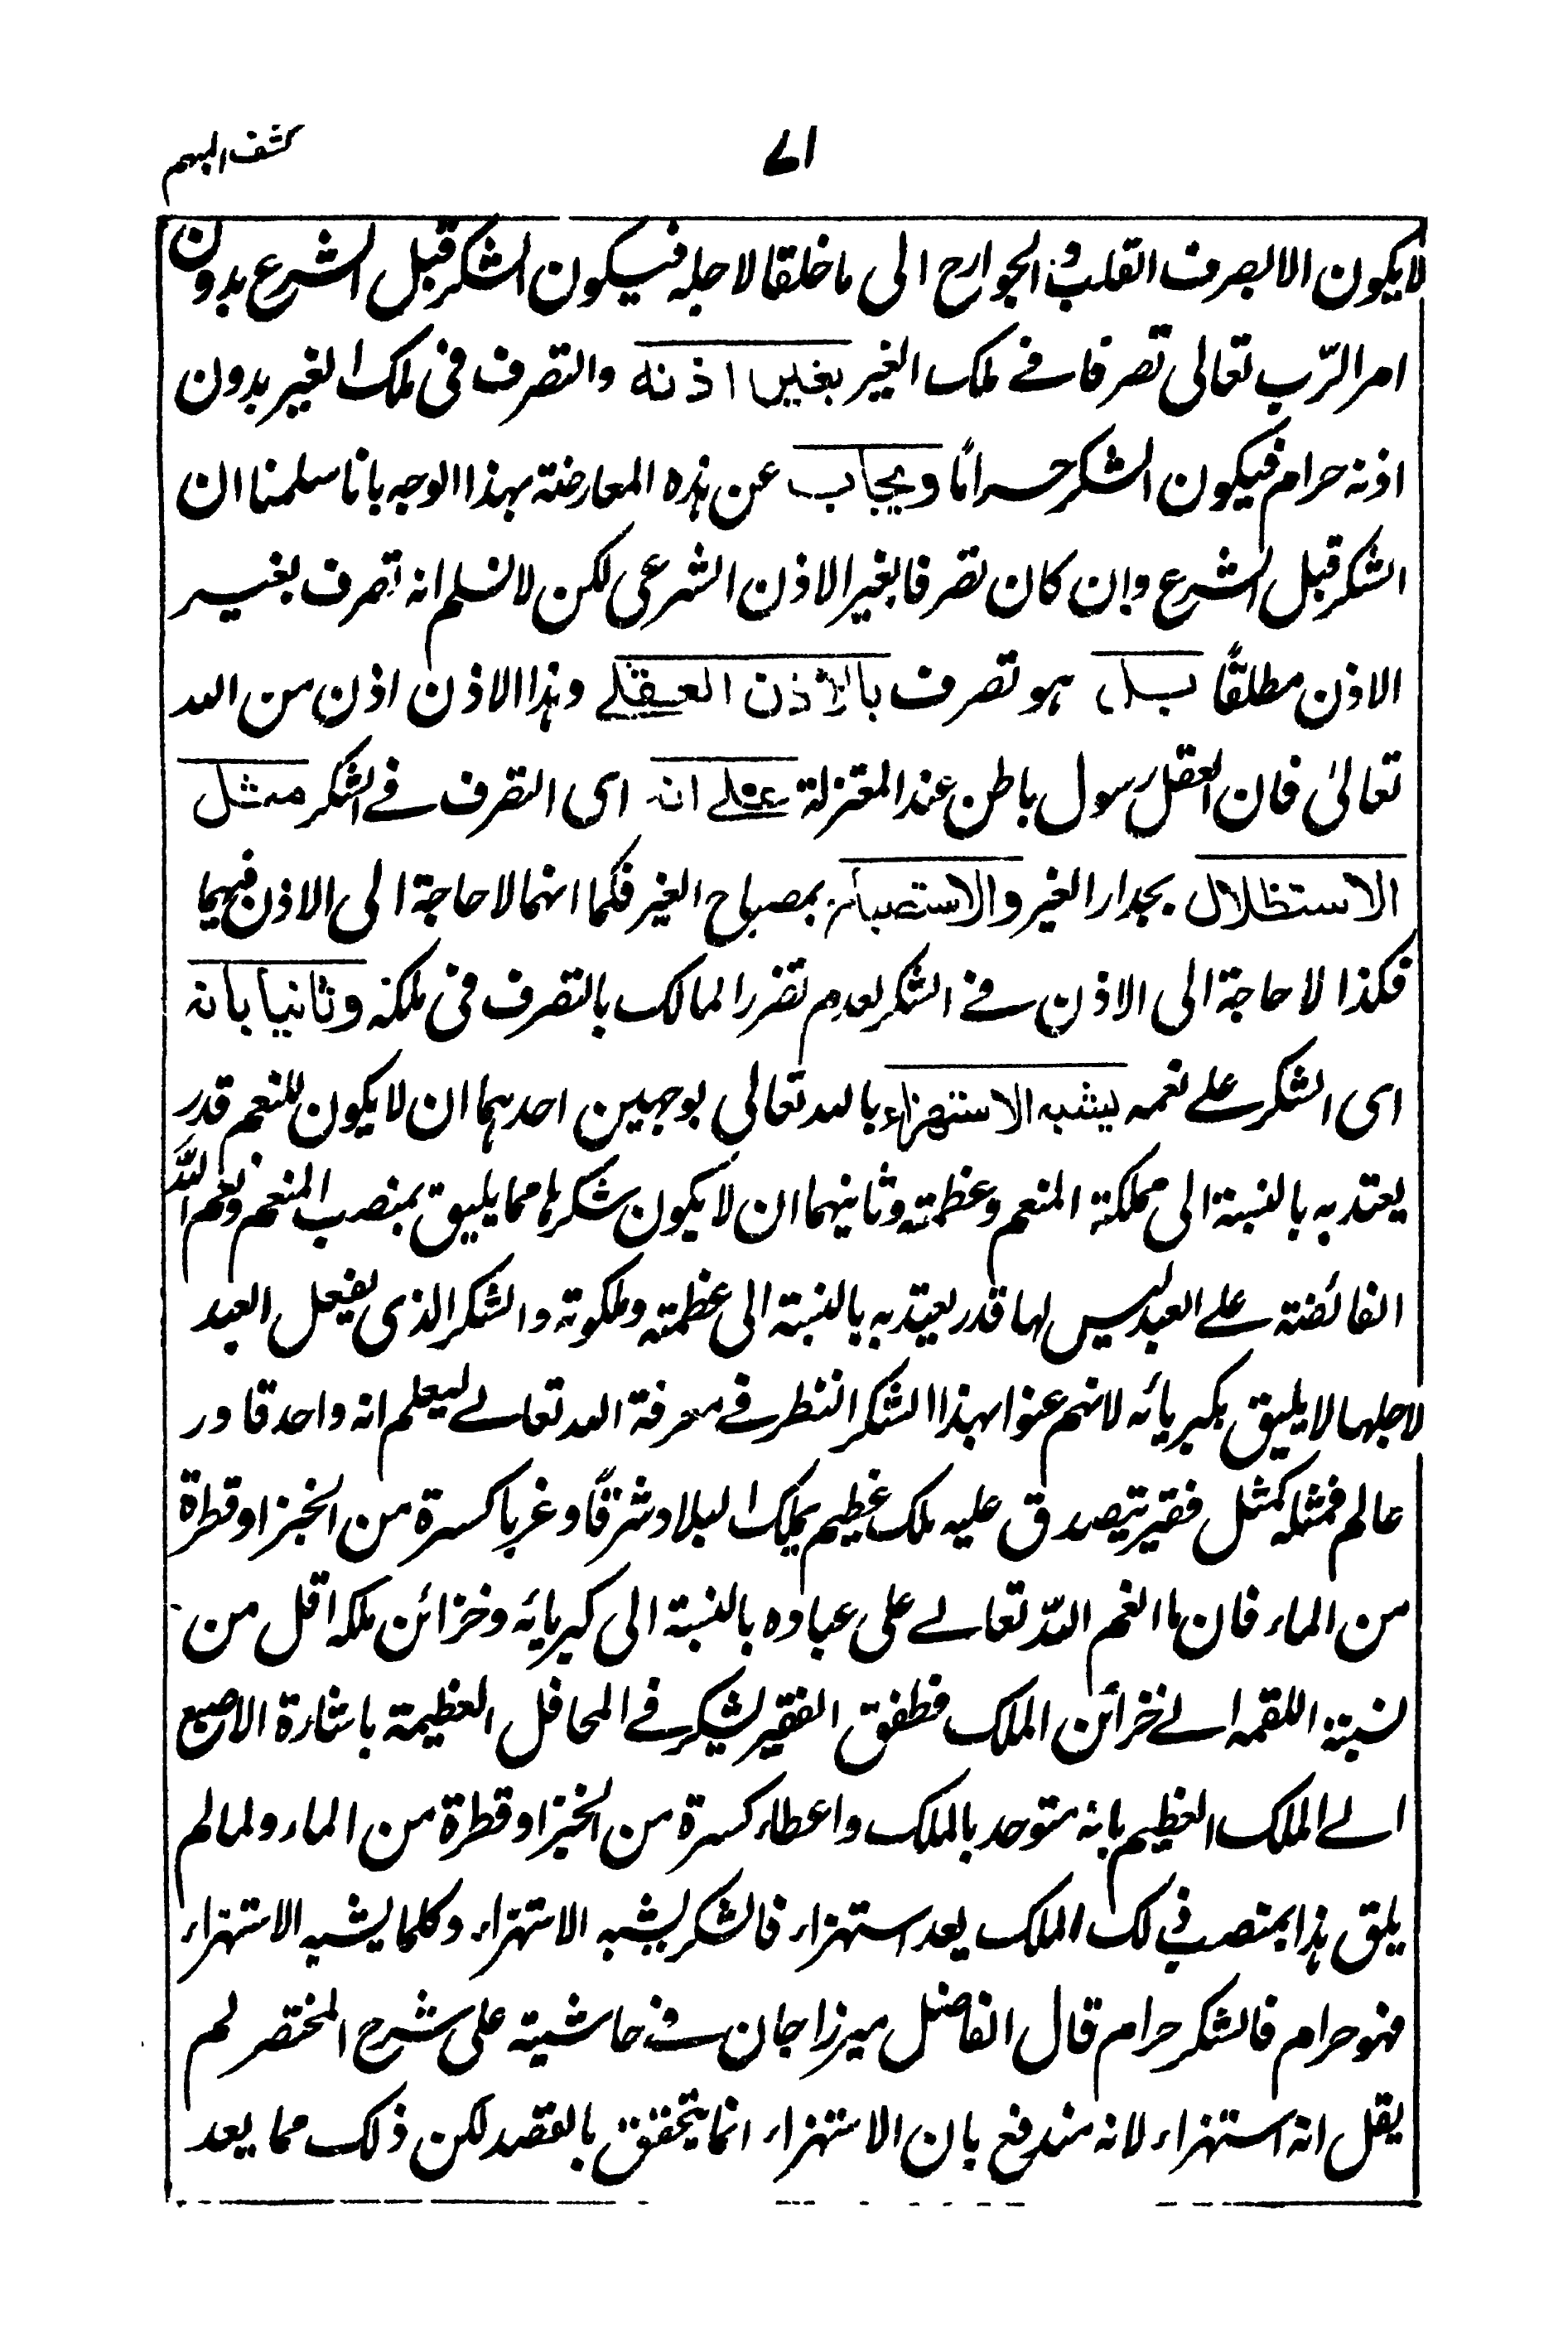 كشف المبهم
٧١
لا يكون الا بصرف القلب والجوارح الى ما خلقا لاجله فيكون الشكر قبل الشرع بدون
امر الرّب تعالى تصرفا فے ملك الغير بغير اذنه والتصرف فى ملك الغير بدون
اذنه حرام فيكون الشكر حرامًا ويجاب عن هذه المعارضة بهذا الوجه بانا سلمنا ان
الشكر قبل الشرع وان كان تصرفا بغير الاذن الشرعى لكن لا نسلم انه تصرف بغير
الاذن مطلقًا بل هو تصرف بالاذن العقلے وهذا الاذن اذن من الله
تعالىٰ فان العقل رسول باطن عند المعتزلة علے انه اى التصرف فے الشكر مثل
الاستظلال بجدار الغير والاستصباح بمصباح الغير فكما انهما لا حاجة الى الاذن فيهما
فكذا لا حاجة الى الاذن فے الشكر لعدم تضرر المالك بالتصرف فى ملكه وثانيا بانه
اى الشكر علے نعمه يشبه الاستهزاء بالله تعالى بوجهين احدهما ان لا يكون للنعم قدر
يعتد به بالنسبة الى مملكة المنعم وعظمته وثانيهما ان لا يكون شكرها مما يليق بمنصب المنعم ونعم اللّٰه
الفائضة علے العبد ليس لها قدر يعتد به بالنسبة الى عظمته وملكوته والشكر الذى يفعل العبد
لاجلها لا يليق بكبريائه لانهم عنوا بهذا الشكر النظر فے معرفة الله تعالے ليعلم انه واحد قادر
عالم فمثله كمثل فقير يتصدق عليه ملك عظيم يملك البلاد شرقًا وغربا كسرة من الخبز او قطرة
من الماء فان ما انعم اللّه تعالے على عباده بالنسبة الى كبريائه وخزائن ملكه اقل من
نسبة اللقمة الے خزائن الملك فطفق الفقير يشكر فے المحافل العظيمة باشارة الاصبع
الے الملك العظيم بانه متوحد بالملك واعطاء كسرة من الخبز او قطرة من الماء ولما لم
يلق هذا بمنصب ذلك الملك يعد استهزاء فالشكر يشبه الاستهزاء وكلما يشبه الاستهزاء
فهو حرام فالشكر حرام قال الفاضل ميرزا جان فے حاشيته على شرح المختصر لم
يقل انه استهزاء لانه مندفع بان الاستهزاء انما يتحقق بالقصد لكن ذلك مما يعد